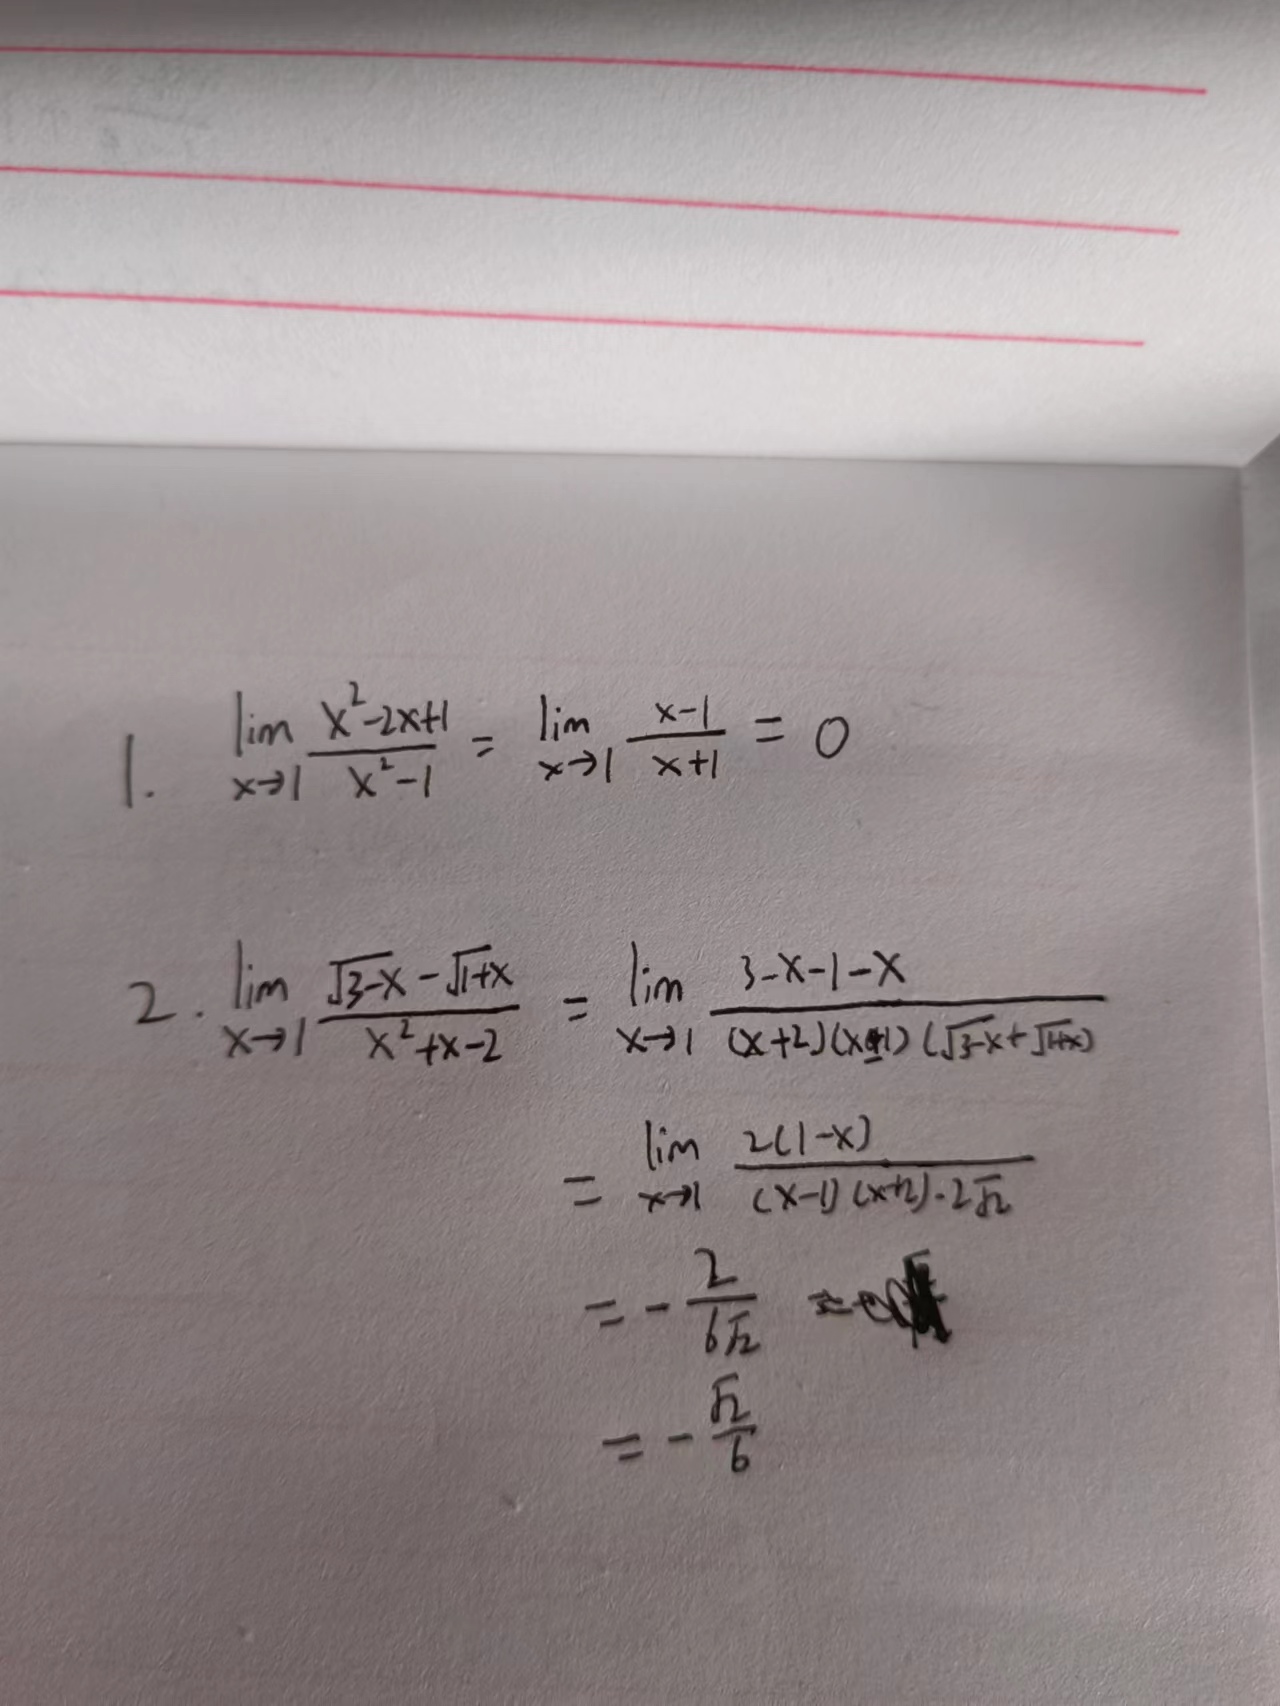 1. lim x→1 (x²-2x+1)/(x²-1) = lim x→1 (x-1)/(x+1) = 0
2. lim x→1 (√3-x - √1+x)/(x²+x-2) = lim x→1 (3-x-1-x)/((x+2)(x-1)(√3-x + √1+x))
= lim x→1 2(1-x)/((x-1)(x+2)·2√2)
= - 2/(6√2)
= - √2/6